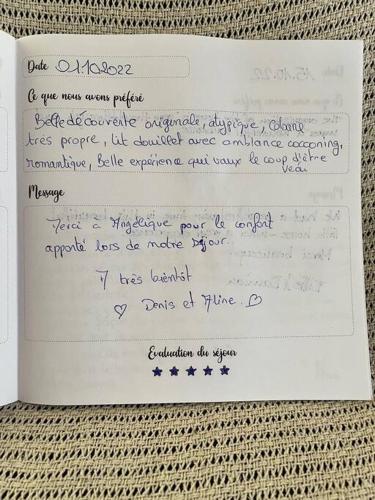 Date 01.10.2022
Ce que nous avons préféré
Belle découverte originale, atypique, Calme
très propre, Lit douillet avec ambiance cocooning,
romantique, Belle expérience qui vaux le coup d'être
Merci à Angélique pour le confort
Message
apporté lors de notre séjour.
A très bientôt
♡ Denis et Aline ♡
Evaluation du séjour
★ ★ ★ ★ ★